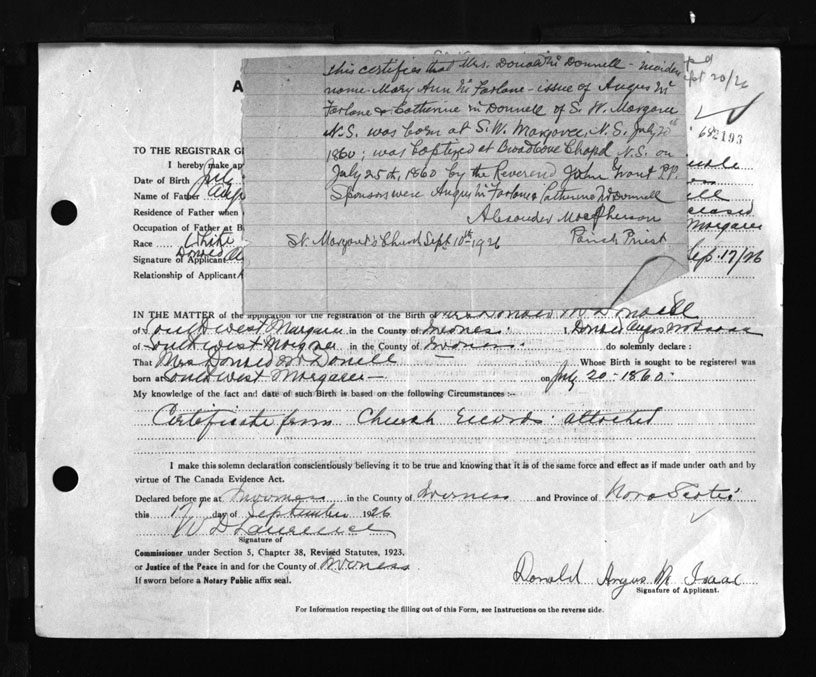 This certifies that Mrs. Donald Mc Donnell - maiden
name - Mary Ann Mc Farlane - issue of Angus Mc
Farlane & Catherine Mc Donnell of S. W. Margaree
N.S. was born at S.W. Margaree, N.S. July 20th
1860; was baptized at Broadcove Chapel, N.S. on
July 25th, 1860 by the Reverend John Grant P.P.
Sponsors were Angus Mc Farlane & Catherine McDonnell
Alexander MacPherson
St. Margaret's Church Sept. 10th 1926 Parish Priest
20/26
692193
TO THE REGISTRAR G
I hereby make ap
Date of Birth July
Name of Father
Residence of Father when
Occupation of Father at B
Margaree
Race White
Signature of Applicant Donald
Sep. 17/26
Relationship of Applicant
IN THE MATTER of the application for the registration of the Birth of Mrs Donald Mc Donell
of South West Margaree in the County of Inverness. I, Donald Angus Mc Isaac
of South West Margaree in the County of Inverness. do solemnly declare :
That Mrs Donald Mc Donell Whose Birth is sought to be registered was
born at South West Margaree on July 20 - 1860.
My knowledge of the fact and date of such Birth is based on the following Circumstances :-
Certificate from Church Records attached
I make this solemn declaration conscientiously believing it to be true and knowing that it is of the same force and effect as if made under oath and by
virtue of The Canada Evidence Act.
Declared before me at Inverness in the County of Inverness and Province of Nova Scotia
this 17 day of September 1926
W D Lawrence
Signature of
Commissioner under Section 5, Chapter 38, Revised Statutes, 1923.
or Justice of the Peace in and for the County of Inverness
If sworn before a Notary Public affix seal.
Donald Angus Mc Isaac
Signature of Applicant.
For Information respecting the filling out of this Form, see Instructions on the reverse side.